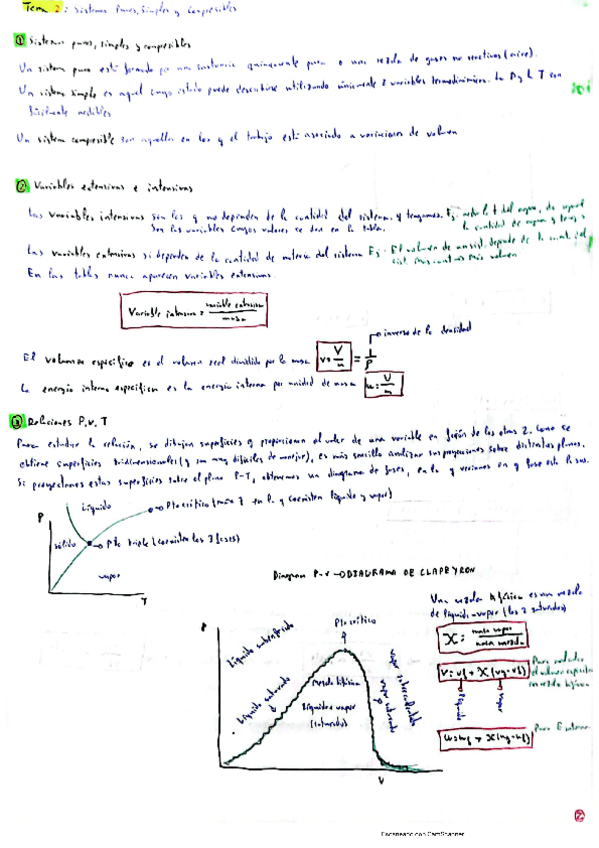 Tema 2: Sistemas Puros, Simples y Compresibles
① Sistemas puros, simples y compresibles
Un sistema puro está formado por una sustancia químicamente pura o una mezcla de gases no reactivos (aire).
Un sistema simple es aquel cuyo estado puede describirse utilizando únicamente 2 variables termodinámicas. La P y la T son
fácilmente medibles
Un sistema compresible son aquellos en los q el trabajo está asociado a variaciones de volumen
② Variables extensivas e intensivas
Las variables intensivas son las q no dependen de la cantidad del sistema q tengamos. Ej:
la cantidad de agua q tengas
Son las variables cuyos valores se dan en la tabla.
Las variables extensivas si dependen de la cantidad de materia del sistema Ej: El volumen de un sist. depende de la cant. del
sist. mas cant mas volumen
En las tablas nunca aparecen variables extensivas.
Variable intensiva = variable extensiva / masa
inverso de la densidad
El volumen específico es el volumen real dividido por la masa v = V/m = 1/ρ
La energía interna específica es la energía interna por unidad de masa u = U/m
③ Relaciones P, v, T
Para estudiar la relación, se dibujan superficies q proporcionan el valor de una variable en función de las otras 2. Como se
obtiene superficies tridimensionales (q son muy difíciles de manejar), es más sencillo analizar sus proyecciones sobre distintos planos.
Si proyectamos estas superficies sobre el plano P-T, obtenemos un diagrama de fases, en lo q veríamos en q fase está la sus.
P
Líquido
Pto crítico (máx T en la q coexisten líquido y vapor)
sólido
Pto triple (coexisten las 3 fases)
vapor
T
Diagrama P-v → DIAGRAMA DE CLAPEYRON
Una mezcla bifásica es una mezcla
de líquido-vapor (los 2 saturados)
P
Pto crítico
X = masa vapor / masa mezcla
Líquido subenfriado
vapor sobrecalentado
Para calcular
el volumen específico
en mezcla bifásica
v = vf + X(vg - vf)
Líquido
vapor
Líquido saturado
Mezcla bifásica
Líquido + vapor
(saturados)
vapor saturado
u = uf + X(ug - uf)
Para E interna
V
2
Escaneado con CamScanner